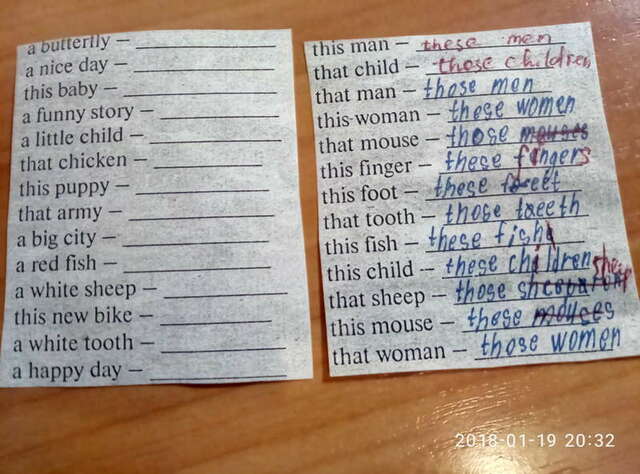 a butterfly –
a nice day –
this baby –
a funny story –
a little child –
that chicken –
this puppy –
that army –
a big city –
a red fish –
a white sheep –
this new bike –
a white tooth –
a happy day –
this man – these men
that child – those children
that man – those men
this woman – these women
that mouse – those mouses
this finger – these fingers
this foot – these
that tooth – those
this fish – these fish
this child – these children
that sheep – those sheep
this mouse – these mouses
that woman – those women
2018-01-19 20:32